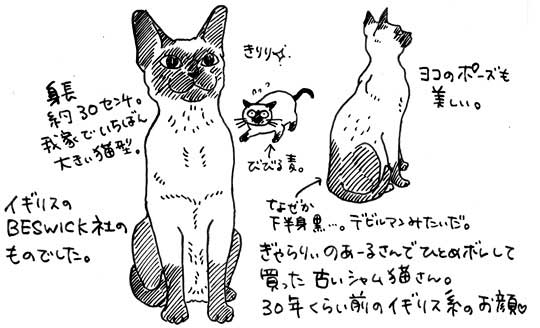 きりり
身長
約30センチ。
我家でいちばん
大きい猫型。
びびる麦。
ヨコのポーズも
美しい。
イギリスの
BESWICK社の
ものでした。
なぜか
下半身黒…。デビルマンみたいだ。
ぎゃらりぃのあーるさんでひとめボレして
買った古いシャム猫さん。
30年くらい前のイギリス系のお顔♡